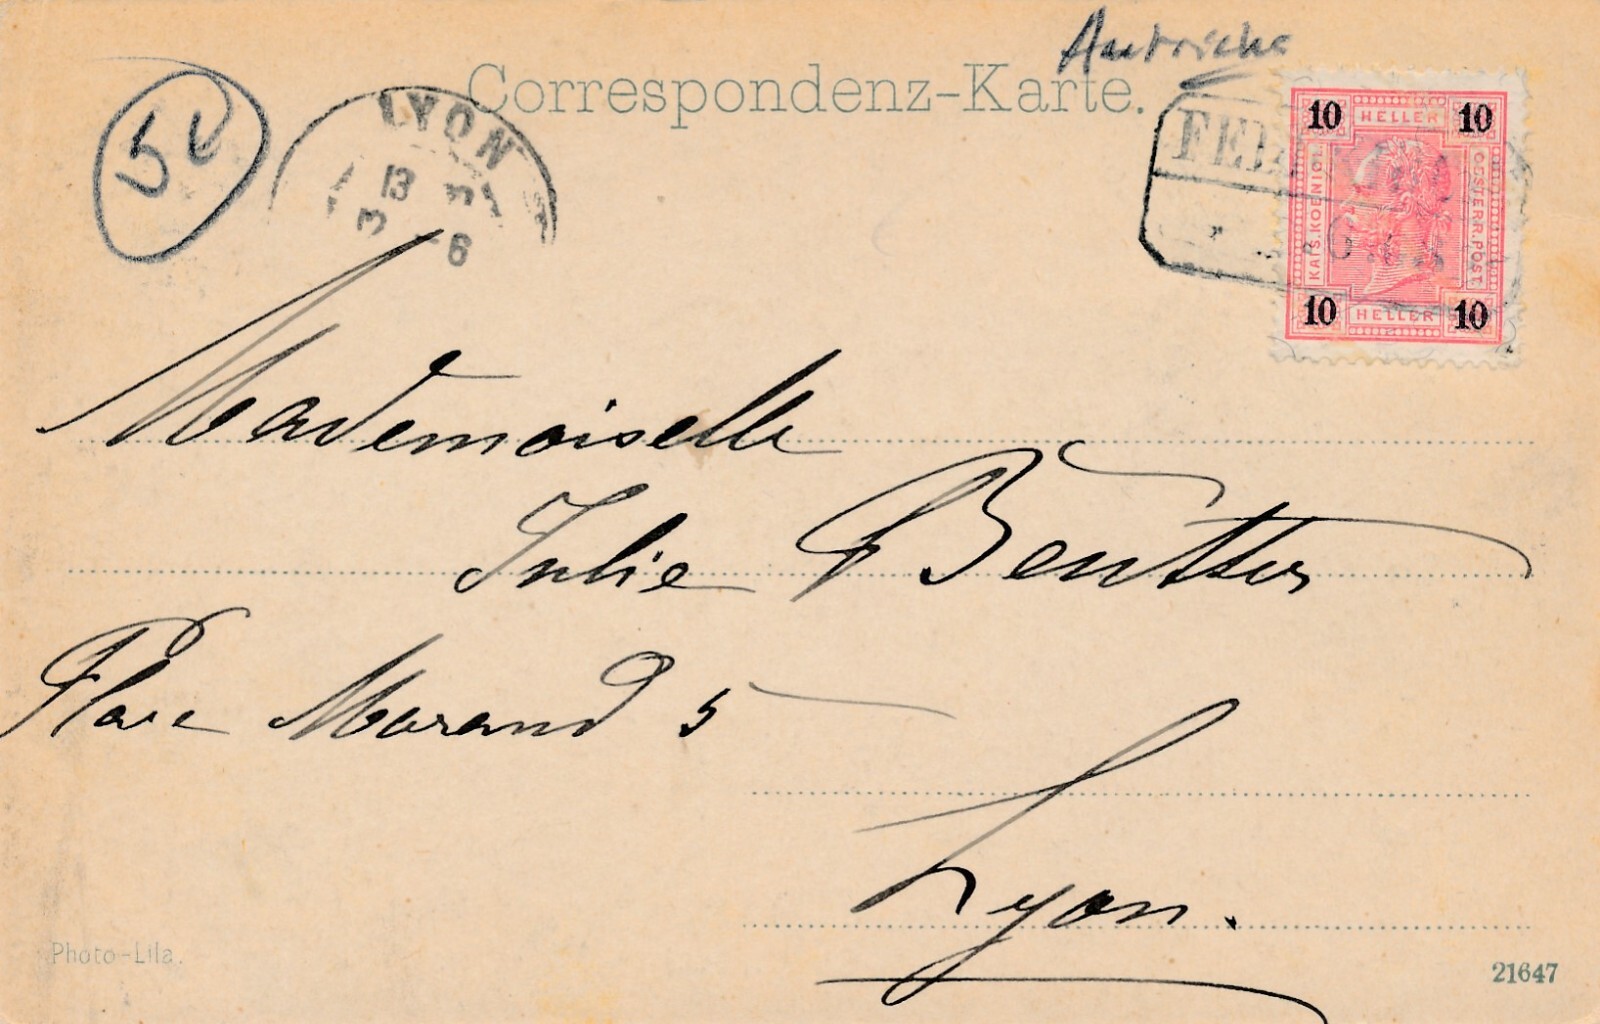 Autriche
Correspondenz-Karte.
LYON
13
3
6
10 HELLER 10
KAIS. KOENIGL.
OESTERR. POST.
10 HELLER 10
Mademoiselle
Julie Beutter
Place Morand 5
Lyon.
Photo-Lila.
21647